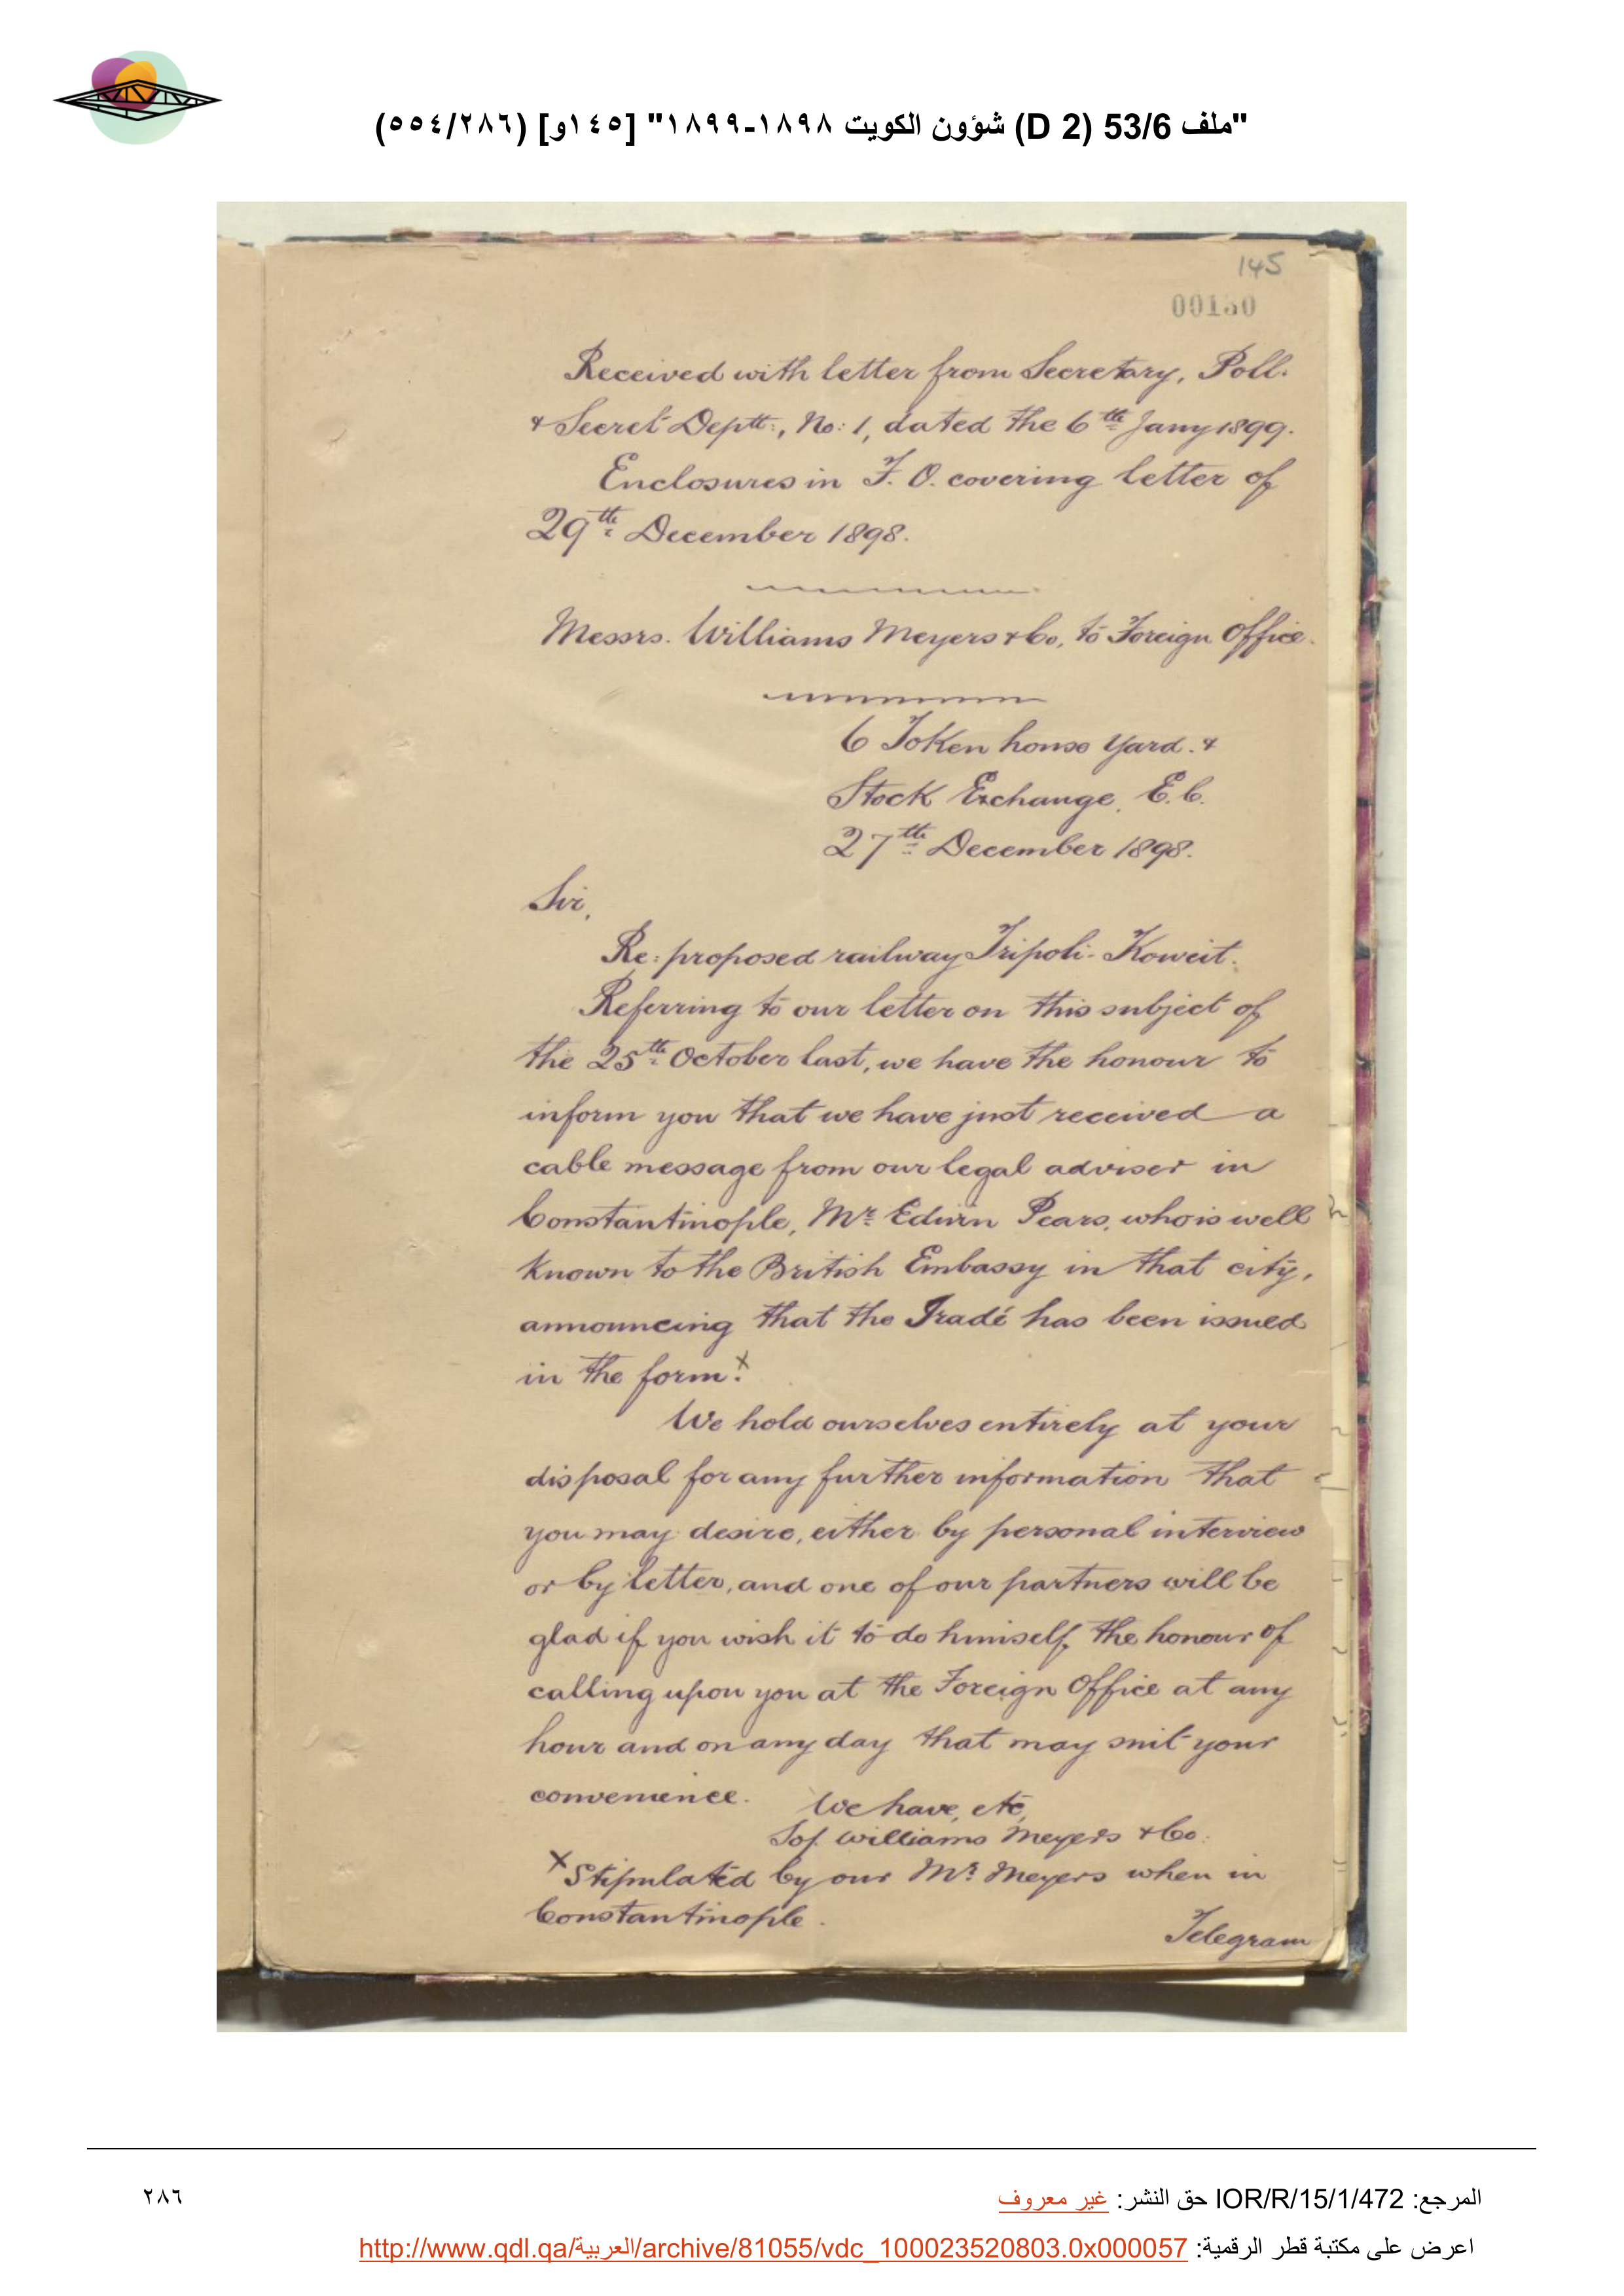 "ملف 53/6 (D 2) شؤون الكويت ١٨٩٨-١٨٩٩" [١٤٥و] (٥٥٤/٢٨٦)
145
00150
Received with letter from Secretary, Poll.
& Secret Deptt:, No: 1, dated the 6th Jany 1899.
Enclosures in F. O. covering letter of
29th December 1898.
Messrs. Williams Meyers & Co, to Foreign Office.
6 Token house Yard. &
Stock Exchange, E.C.
27th December 1898.
Sir,
Re: proposed railway Tripoli- Koweit.
Referring to our letter on this subject of
the 25th October last, we have the honour to
inform you that we have just received a
cable message from our legal adviser in
Constantinople, Mr Edwin Pears, who is well
known to the British Embassy in that city,
announcing that the Iradé has been issued
in the form.x
We hold ourselves entirely at your
disposal for any further information that
you may desire, either by personal interview
or by letter, and one of our partners will be
glad if you wish it to do himself the honour of
calling upon you at the Foreign Office at any
hour and on any day that may suit your
convenience. We have, etc,
Williams Meyers & Co.
x Stipulated by our Mr. Meyers when in
Constantinople.
Telegram
المرجع: IOR/R/15/1/472 حق النشر: غير معروف
٢٨٦
اعرض على مكتبة قطر الرقمية: http://www.qdl.qa/العربية/archive/81055/vdc_100023520803.0x000057